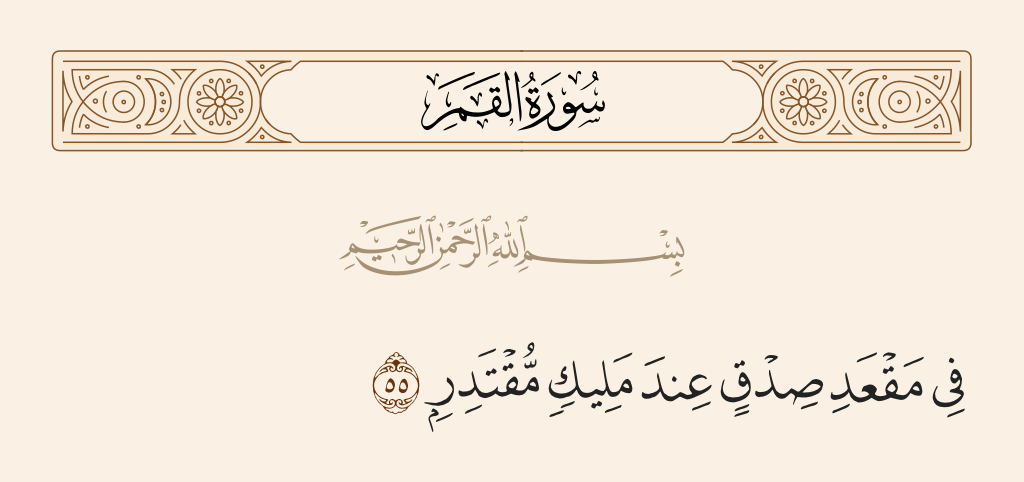 سُورَةُ القَمَرِ
بِسْمِ ٱللَّهِ ٱلرَّحْمَٰنِ ٱلرَّحِيمِ
فِى مَقْعَدِ صِدْقٍ عِندَ مَلِيكٍ مُّقْتَدِرٍۭ ٥٥